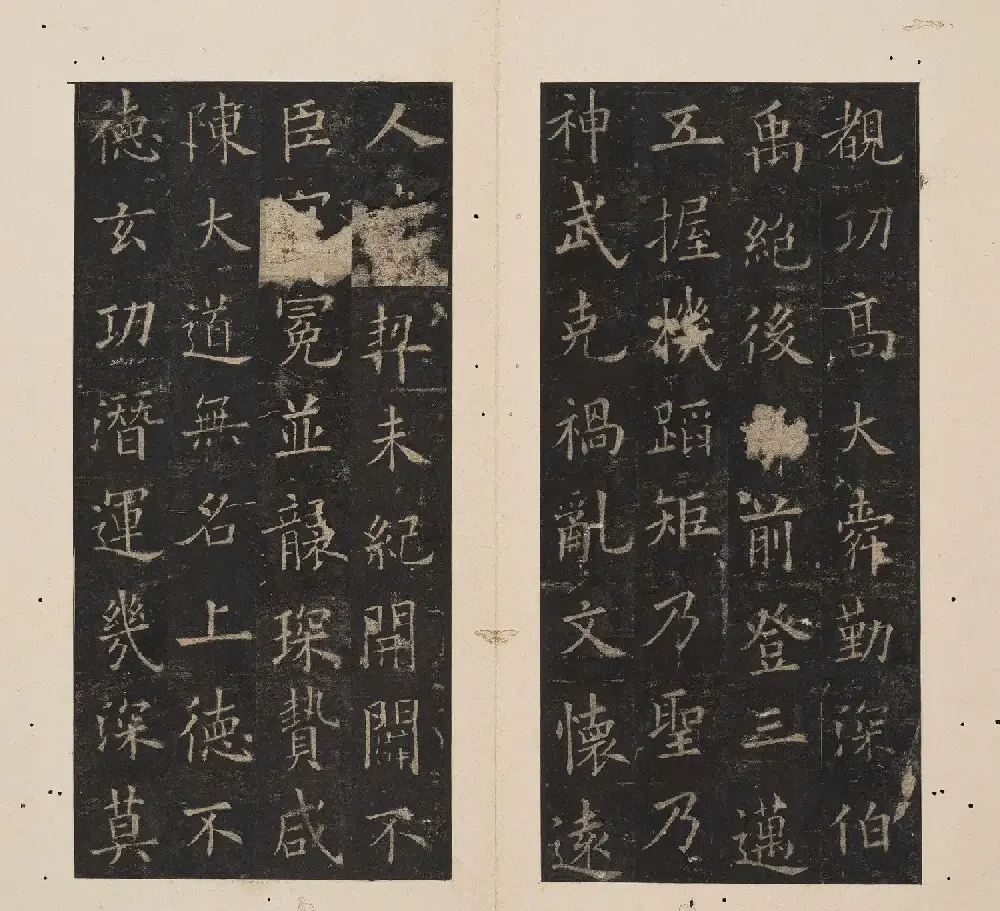 觀功高大舜勤深伯
禹絕後前登三邁
五握機蹈矩乃聖乃
神武克禍亂文懷遠
人契未紀開闢不
臣冕並襲琛贄咸
陳大道無名上德不
德玄功潛運幾深莫